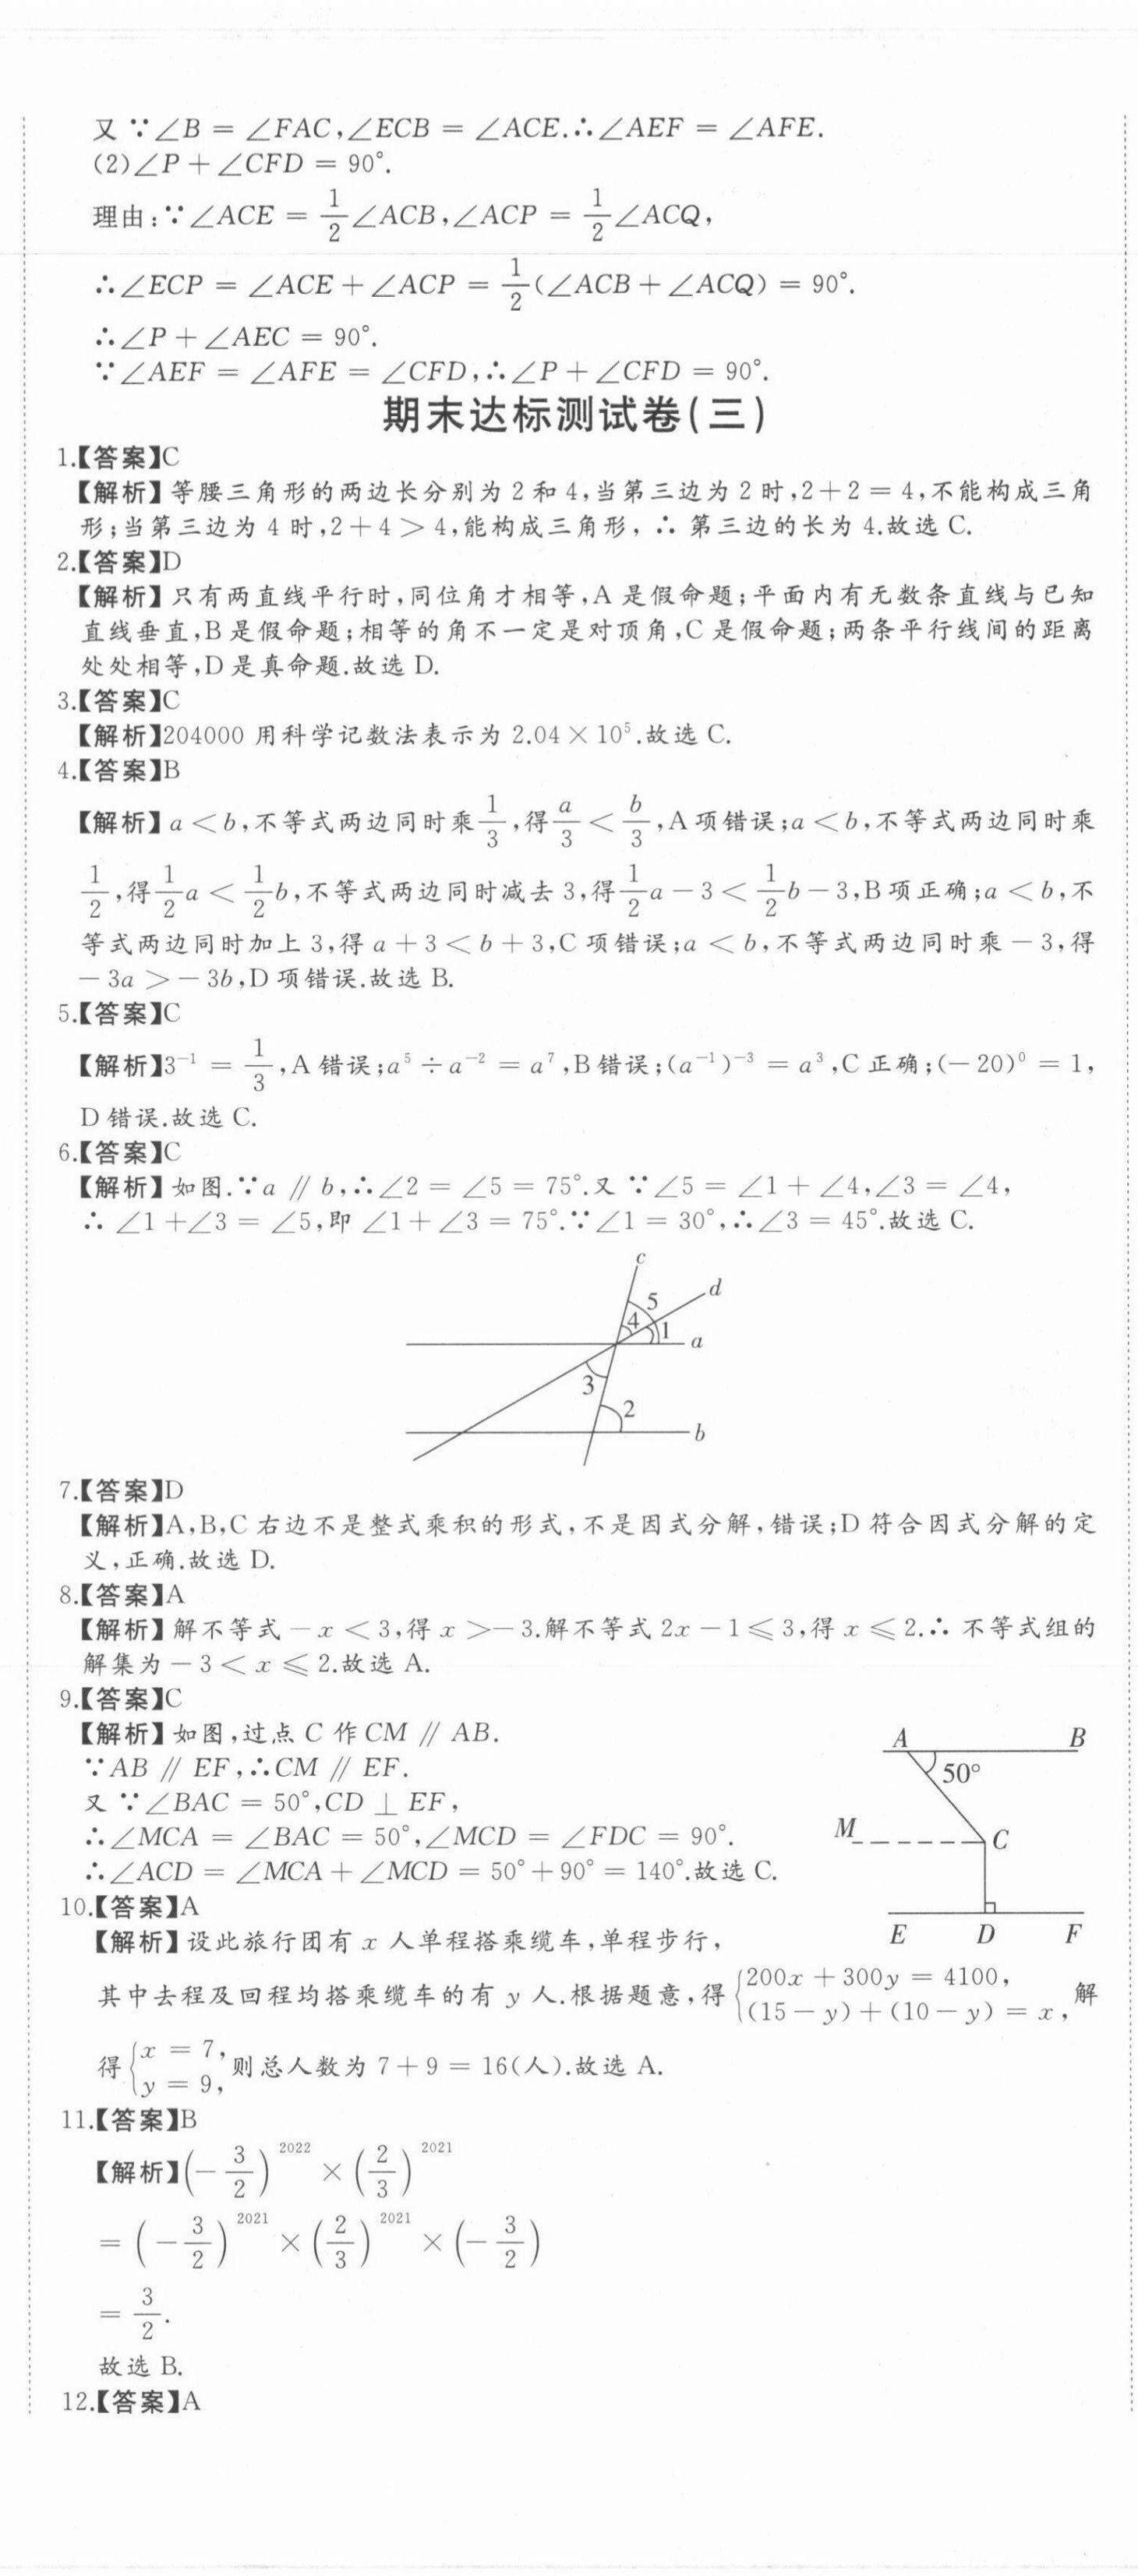 又 ∵∠B = ∠FAC,∠ECB = ∠ACE.∴∠AEF = ∠AFE.
(2)∠P + ∠CFD = 90°.
理由:∵∠ACE = 1/2∠ACB,∠ACP = 1/2∠ACQ,
∴∠ECP = ∠ACE + ∠ACP = 1/2(∠ACB + ∠ACQ) = 90°.
∴∠P + ∠AEC = 90°.
∵∠AEF = ∠AFE = ∠CFD,∴∠P + ∠CFD = 90°.
期末达标测试卷(三)
1.【答案】C
【解析】等腰三角形的两边长分别为 2 和 4,当第三边为 2 时,2+2 = 4,不能构成三角
形;当第三边为 4 时,2+4 > 4,能构成三角形, ∴ 第三边的长为 4.故选 C.
2.【答案】D
【解析】只有两直线平行时,同位角才相等,A 是假命题;平面内有无数条直线与已知
直线垂直,B 是假命题;相等的角不一定是对顶角,C 是假命题;两条平行线间的距离
处处相等,D 是真命题.故选 D.
3.【答案】C
【解析】204000 用科学记数法表示为 2.04 × 10⁵.故选 C.
4.【答案】B
【解析】a < b,不等式两边同时乘1/3,得a/3 < b/3,A 项错误;a < b,不等式两边同时乘
1/2,得1/2a < 1/2b,不等式两边同时减去 3,得1/2a − 3 < 1/2b − 3,B 项正确;a < b,不
等式两边同时加上 3,得 a + 3 < b + 3,C 项错误;a < b,不等式两边同时乘 − 3,得
− 3a > − 3b,D 项错误.故选 B.
5.【答案】C
【解析】3⁻¹ = 1/3,A 错误;a⁵ ÷ a⁻² = a⁷,B 错误;(a⁻¹)⁻³ = a³,C 正确;(− 20)⁰ = 1,
D 错误.故选 C.
6.【答案】C
【解析】如图.∵a ∥ b,∴∠2 = ∠5 = 75°.又 ∵∠5 = ∠1 + ∠4,∠3 = ∠4,
∴ ∠1 +∠3 = ∠5,即 ∠1 + ∠3 = 75°.∵∠1 = 30°,∴∠3 = 45°.故选 C.
c
d
5
4
1
a
3
2
b
7.【答案】D
【解析】A,B,C 右边不是整式乘积的形式,不是因式分解,错误;D 符合因式分解的定
义,正确.故选 D.
8.【答案】A
【解析】解不等式 − x < 3,得 x >− 3.解不等式 2x − 1 ⩽ 3,得 x ⩽ 2.∴ 不等式组的
解集为 − 3 < x ⩽ 2.故选 A.
9.【答案】C
【解析】如图,过点 C 作 CM ∥ AB.
∵AB ∥ EF,∴CM ∥ EF.
又 ∵∠BAC = 50°,CD ⊥ EF,
∴∠MCA = ∠BAC = 50°,∠MCD = ∠FDC = 90°.
∴∠ACD = ∠MCA + ∠MCD = 50° + 90° = 140°.故选 C.
A B
50°
M C
E D F
10.【答案】A
【解析】设此旅行团有 x 人单程搭乘缆车,单程步行,
其中去程及回程均搭乘缆车的有 y 人.根据题意,得{200x + 300y = 4100, (15 − y) + (10 − y) = x, 解
得{x = 7, y = 9, 则总人数为 7 + 9 = 16(人).故选 A.
11.【答案】B
【解析】(− 3/2)²⁰²² × (2/3)²⁰²¹
= (− 3/2)²⁰²¹ × (2/3)²⁰²¹ × (− 3/2)
= 3/2.
故选 B.
12.【答案】A